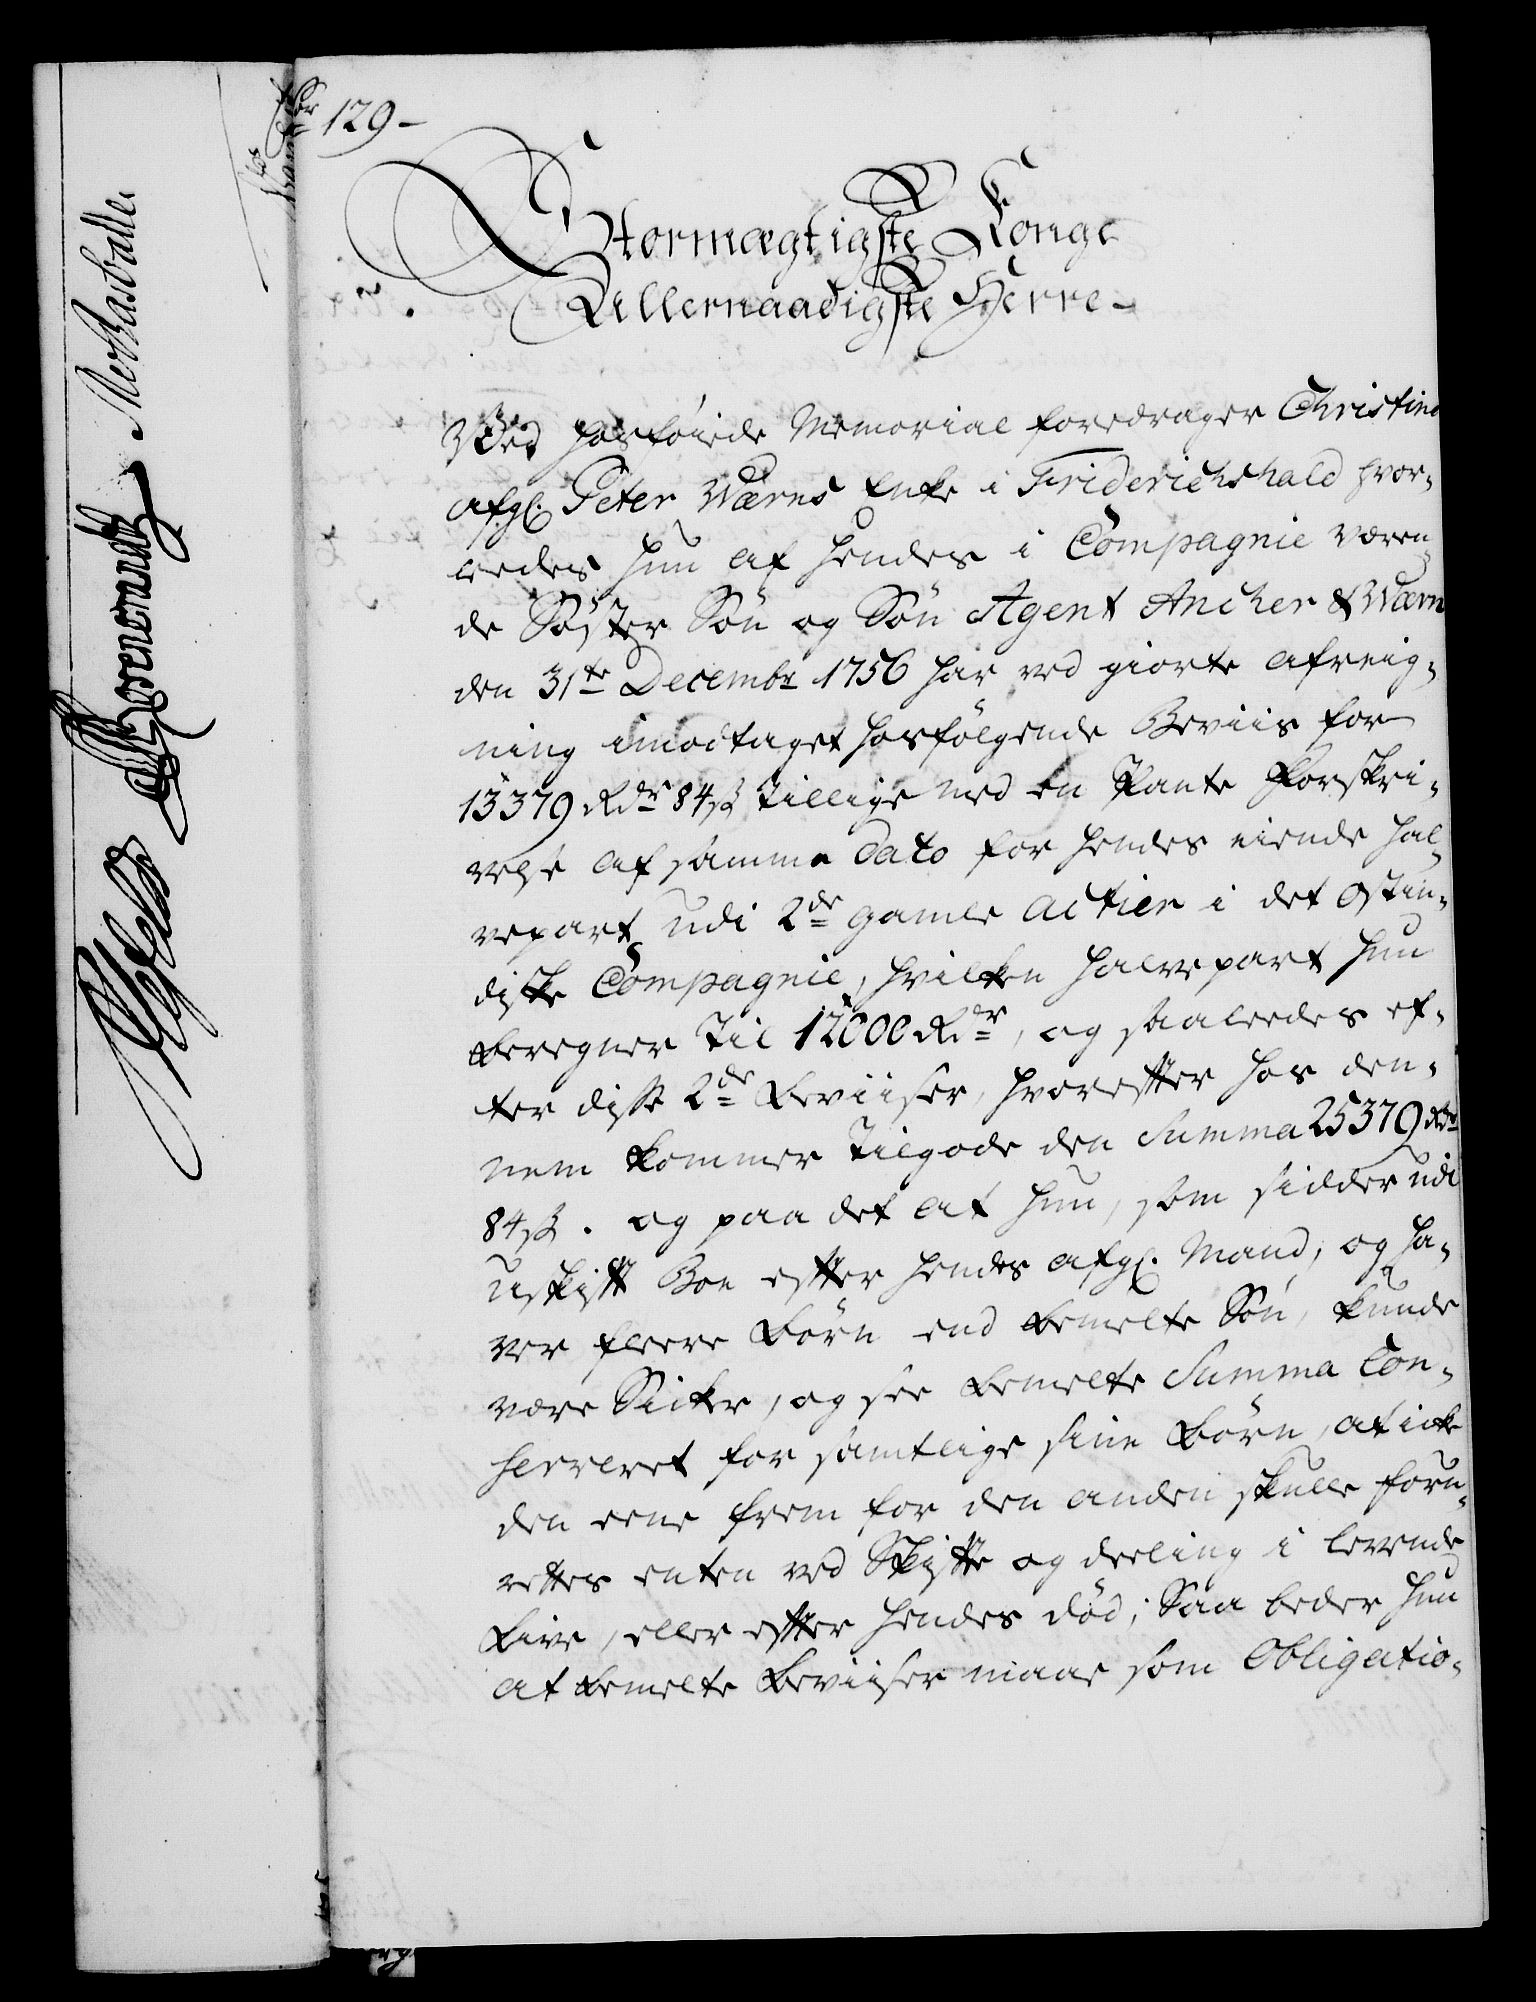 129-
Stormægtigste Konge
Allernaadigste Herre-
Ved hosføiede Memorial foredrager Christine
afgl. Peter Wærns Enke i Friderichshald hvor-
ledes hun af hendes i Compagnie væren-
de Søster Søn og Søn Agent Ancher & Wærn
den 31te Decembr 1756 har ved giorte afreig-
ning imodtaget hosfølgende Beviis for
13379 Rdr 84 ß tillige med en Pante Forskri-
velse af samme dato for hendes eiende hal-
vepart udi 2de gamle actier i det ostin-
diske Compagnie, hvilken halvepart hun
beregner til 12000 Rdr, og saaledes ef-
ter disse 2de Beviiser, hvorefter hos den-
nem kommer tilgode den Summa 25379 Rdr
84 ß. og paa det at hun, som sidder udi
uskift Boe efter hendes afgl. Mand, og ha-
ver fleere Børn end bemelte Søn, kunde
være Sicker, og see bemelte Summa Con-
serveret for samtlige sine Børn, at icke
den eene frem for den anden skulle foru-
rettes enten ved Skifte og deeling i levende
Live, eller efter hendes død; Saa beder hun
at bemelte Beviiser maae som Obligatio-